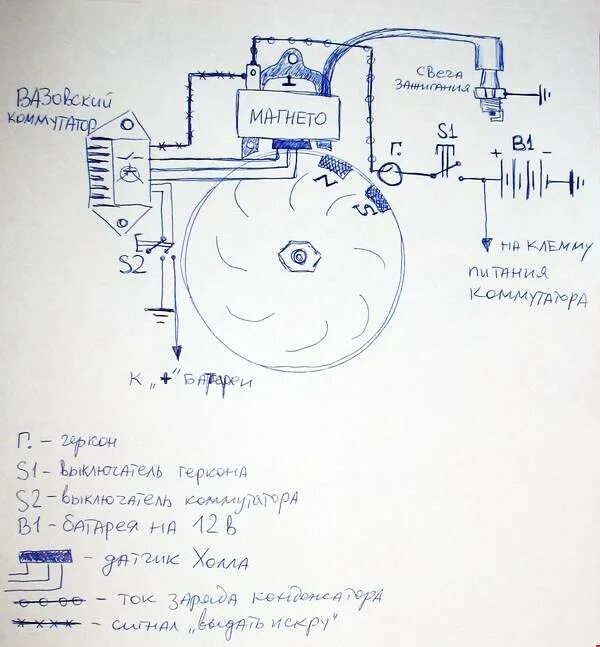 ВАЗОВСКИЙ
КОММУТАТОР
МАГНЕТО
СВЕЧА
ЗАЖИГАНИЯ
Г.
S1
+ B1 -
N
S
S2
НА КЛЕММУ
ПИТАНИЯ
КОММУТАТОРА
К „+“ БАТАРЕИ
Г. – геркон
S1 - выключатель геркона
S2 – выключатель коммутатора
B1 - батарея на 12 в
- датчик Холла
- ток заряда конденсатора
- сигнал „выдать искру“